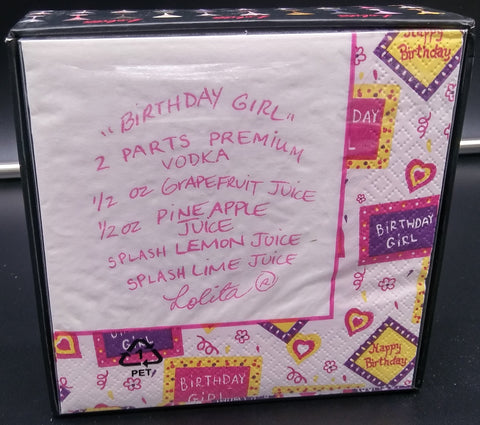 Lolita
"BIRTHDAY GIRL"
2 PARTS PREMIUM
VODKA
1/2 oz GRAPEFRUIT JUICE
1/2 oz PINEAPPLE
JUICE
SPLASH LEMON JUICE
SPLASH LIME JUICE
Lolita ®
PET
Happy
Birthday
DAY
L
BIRTHDAY
GIRL
Happy
Birthday
BIRTHDAY
GIRL